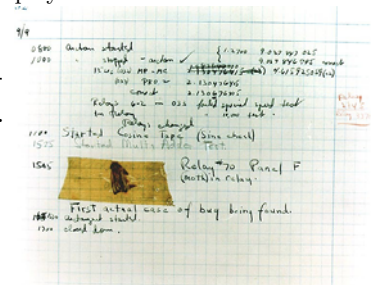 9/9
0800 antan started
1000 " stopped - antan ✓ { 1.2700 9.037 847 025
9.037 846 995 correct
13" uc (032) MP-MC 4.615925059(-2)
(033) PRO 2 2.130476415
correct 2.130676415
Relays 6-2 in 033 failed special speed test
in Relay " test.
Relays changed
1100 Started Cosine Tape (Sine check)
1525 Started Multi Adder Test.
1545 Relay #70 Panel F
(moth) in relay.
First actual case of bug being found.
1630 antangent started.
1700 closed down.